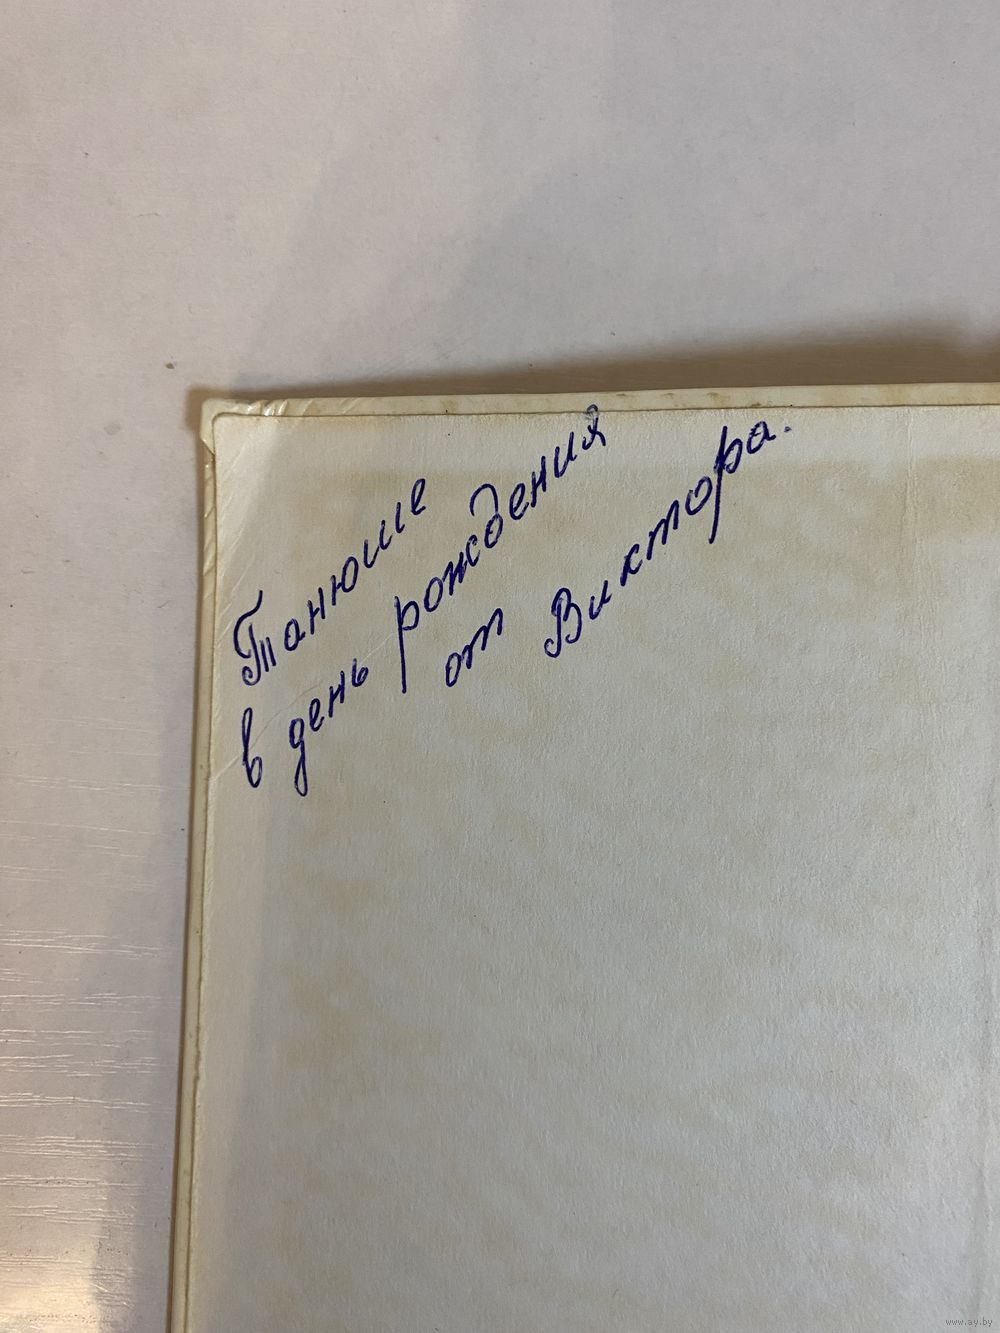 Танюше
в день рождения
от Виктора.
www.ay.by